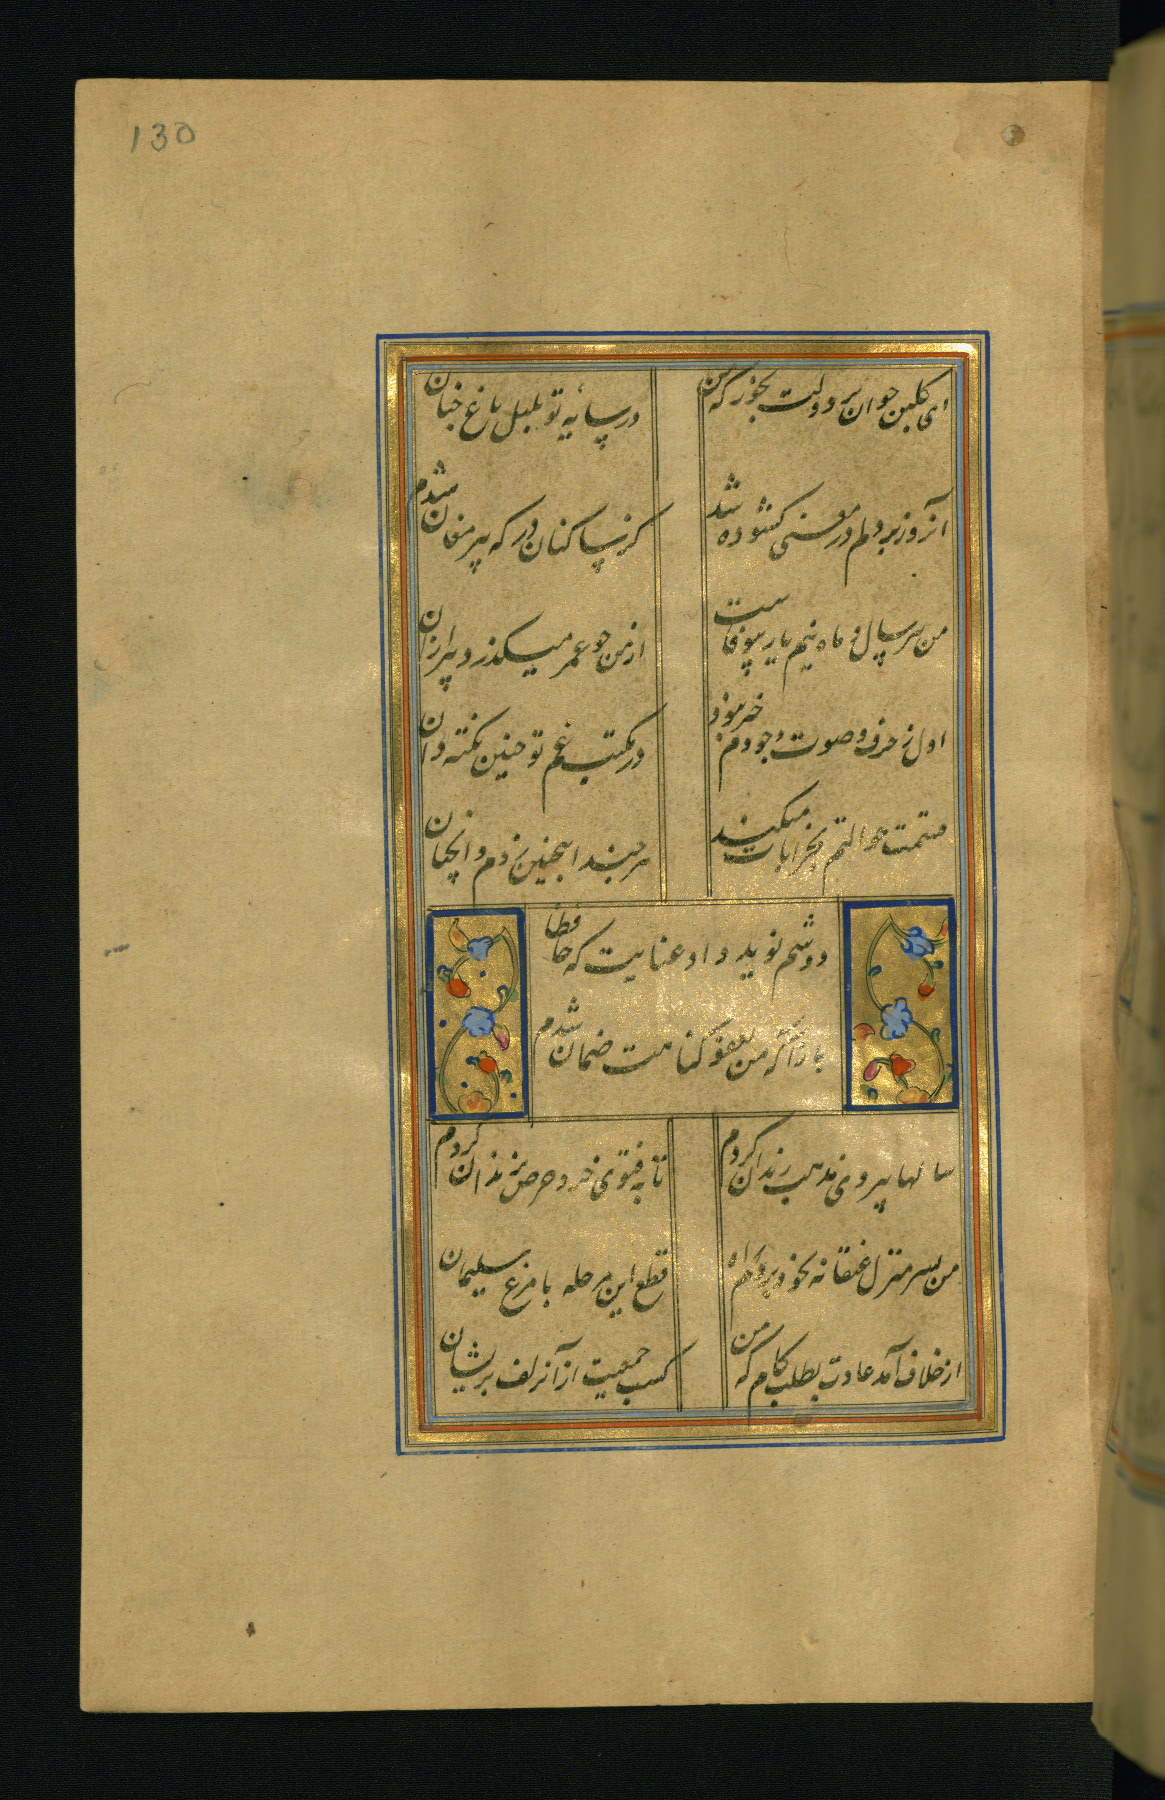 130
ای گلبن جوان بر دولت بخور که من
در سایه تو بلبل باغ جنان
آنروز بر دلم در معنی گشوده شد
کز ساکنان درگه پیر مغان شدم
من سال و ماه نیم یار بیوفاست
از من چو عمر میگذرد پیر ازان
اول ز حرف و صوت وجودم خبر نبود
در مکتب غم تو چنین نکته دان
قسمت حوالتم بخرابات میکند
هر چند اینچنین زدم و آنچنان
دوشم نوید داد عنایت که حافظا
بازآ که من بعفو گناهت ضمان شدم
سالها پیروی مذهب رندان کردم
تا به فتوی خرد حرص بزندان کردم
من بسر منزل عنقا نه بخود بردم راه
قطع این مرحله با مرغ سلیمان
از خلاف آمد عادت بطلب کام که من
کسب جمعیت از آن زلف پریشان